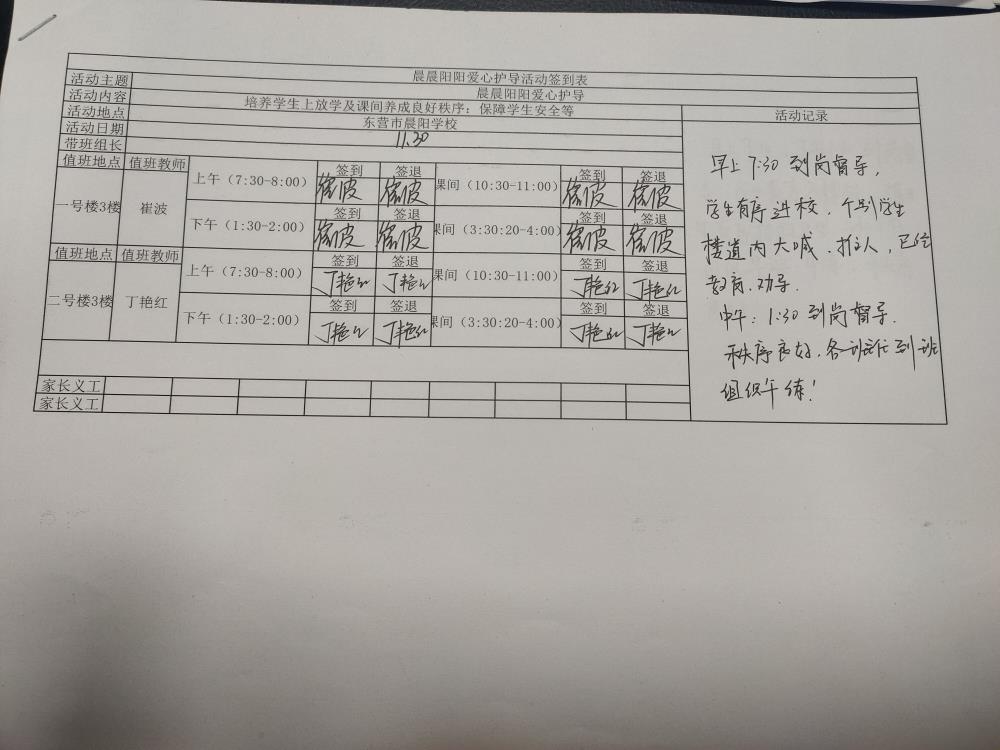 晨晨阳阳爱心护导活动签到表
活动主题 晨晨阳阳爱心护导
活动内容 培养学生上放学及课间养成良好秩序；保障学生安全等
活动地点 东营市晨阳学校
活动日期 11.30
带班组长
活动记录
值班地点 值班教师 上午（7:30-8:00） 签到 签退 课间（10:30-11:00） 签到 签退
一号楼3楼 崔波 崔波 崔波 崔波 崔波
下午（1:30-2:00） 签到 签退 课间（3:30:20-4:00） 签到 签退
崔波 崔波 崔波 崔波
值班地点 值班教师 上午（7:30-8:00） 签到 签退 课间（10:30-11:00） 签到 签退
二号楼3楼 丁艳红 丁艳红 丁艳红 丁艳红 丁艳红
下午（1:30-2:00） 签到 签退 课间（3:30:20-4:00） 签到 签退
丁艳红 丁艳红 丁艳红 丁艳红
家长义工
家长义工
早上7:30到岗督导,
学生有序进校.个别学生
楼道内大喊.推人,已给
教育.劝导.
中午:1:30到岗督导.
秩序良好.各班主任到班
组织午练!